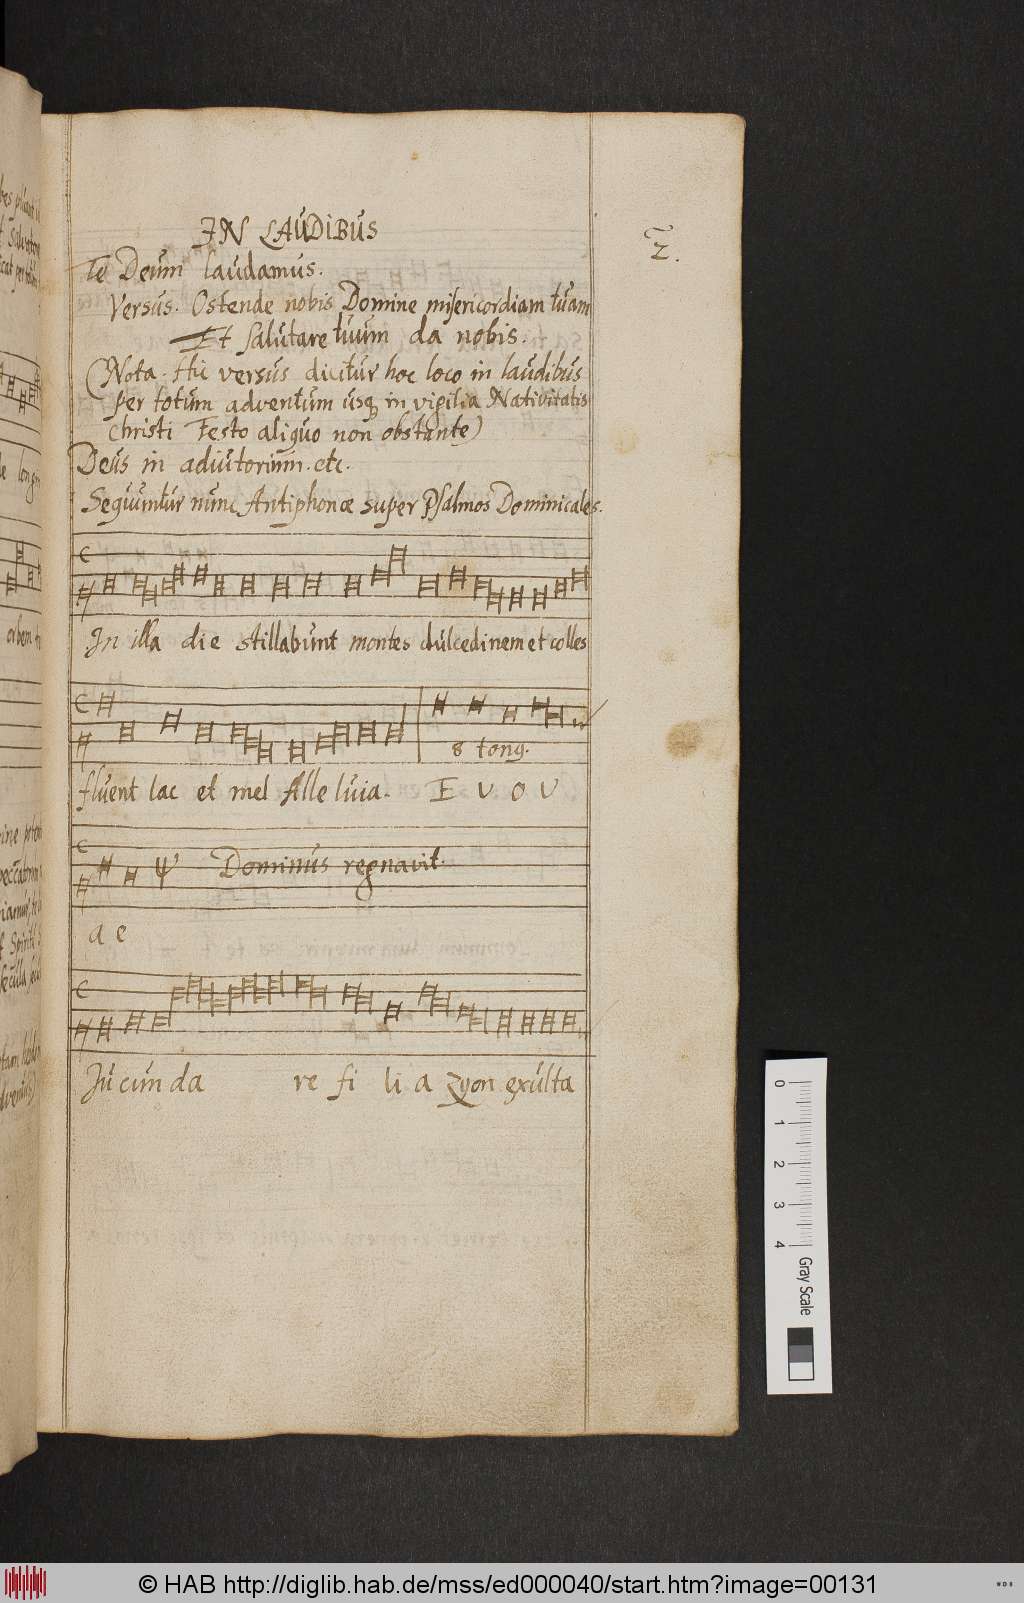 IN LAUDIBUS
2.
Te Deum laudamus.
Versus. Ostende nobis Domine misericordiam tuam
Et salutare tuum da nobis.
(Nota. Hic versus dicitur hoc loco in laudibus
per totum adventum usq in vigilia Nativitatis
Christi Festo aliquo non obstante)
Deus in adiutorium. etc.
Sequuntur nunc Antiphonæ super Psalmos Dominicales.
In illa die stillabunt montes dulcedinem et colles
8 tong.
fluent lac et mel Alleluia. E V O V
Dominus regnavit.
a e
Jucunda re fi li a zyon exulta
0 1 2 3 4 Gray Scale
© HAB http://diglib.hab.de/mss/ed000040/start.htm?image=00131